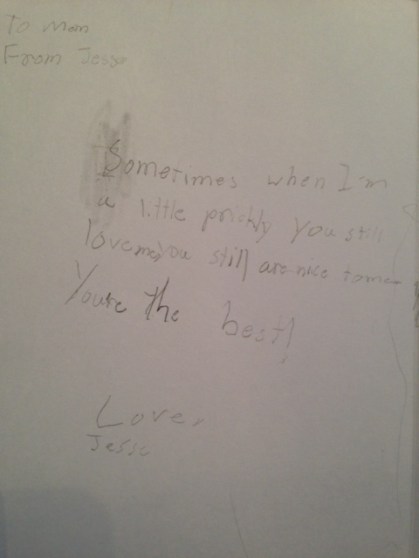 To Mom
From Jesse
Sometimes when I'm
a little prickly you still
love me, you still are nice to me
You're the best!
Love,
Jesse